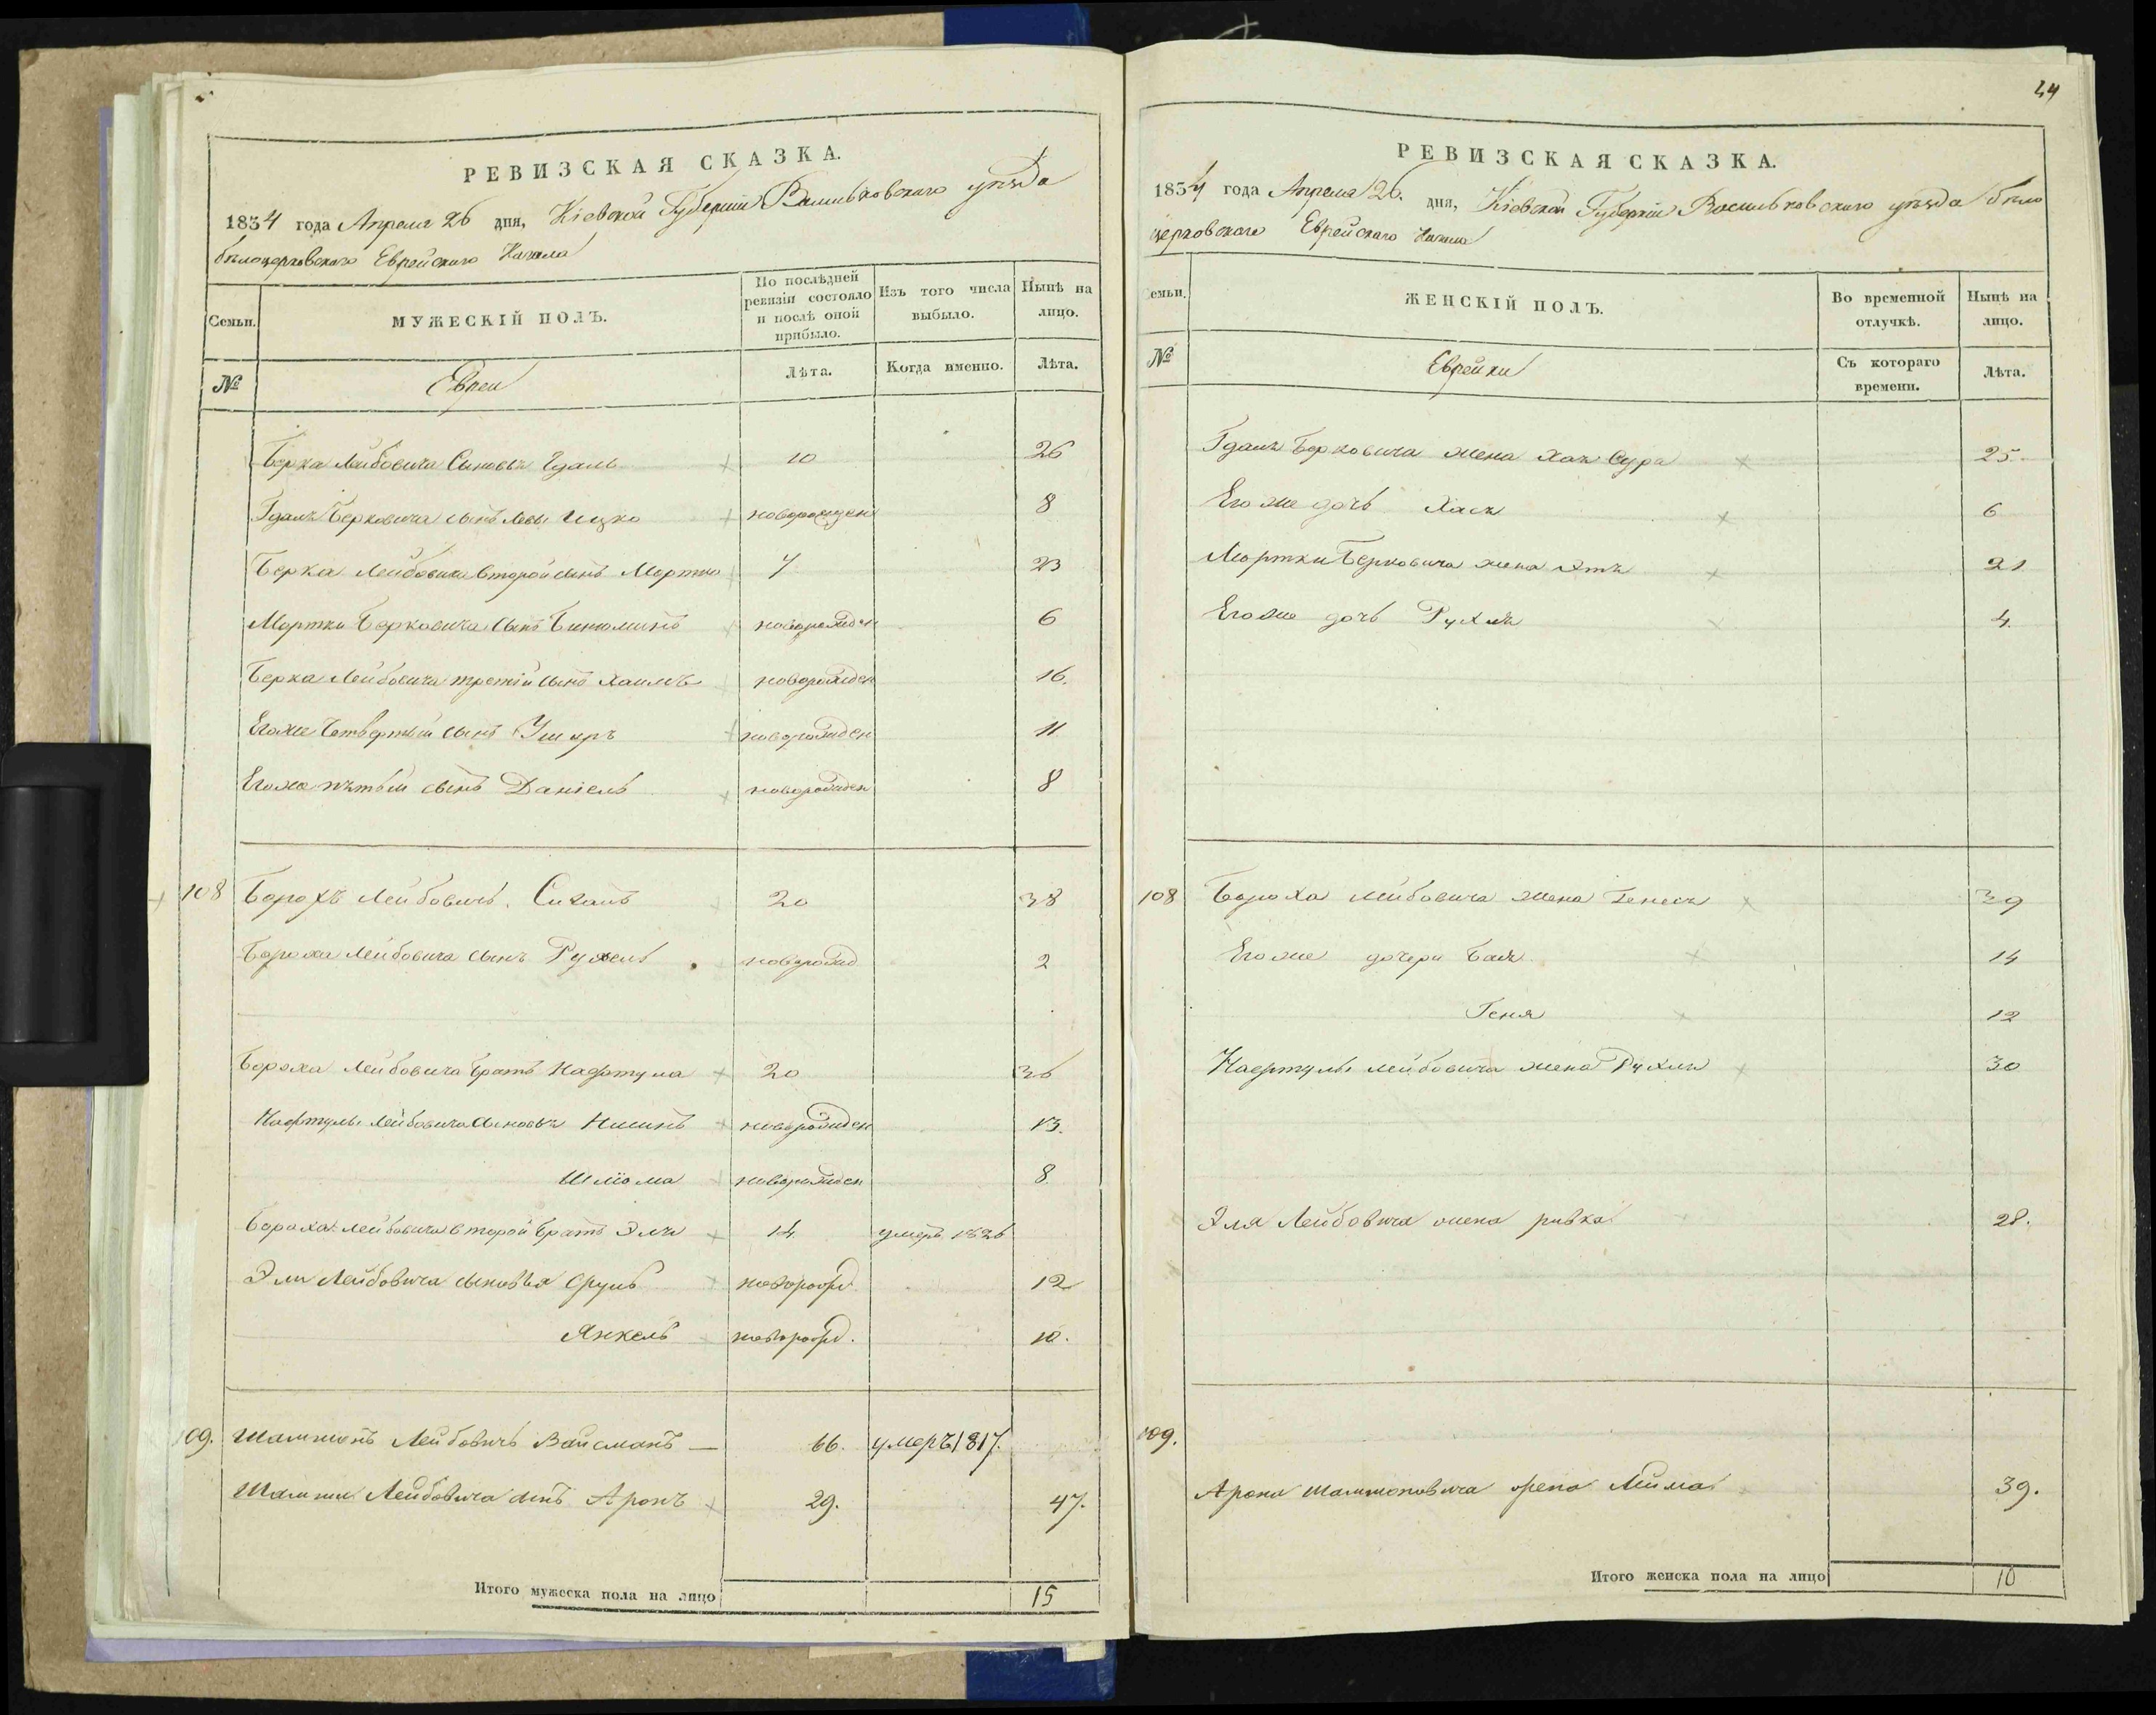 РЕВИЗСКАЯ СКАЗКА.
1834 года Апреля 26 дня, Кіевской Губерніи Васильковского уѣзда
бѣлоцерковского Еврейского Кагала
Семьи.
МУЖЕСКІЙ ПОЛЪ.
По послѣдней ревизіи состояло и послѣ оной прибыло.
Изъ того числа выбыло.
Нынѣ на лицо.
№
Евреи
Лѣта.
Когда именно.
Лѣта.
Берка Лейбовича Сыновья Гдаль 10 26
Гдаля Берковича сынъ Ицко новорожден 8
Берка Лейбовича второй сынъ Мортко 7 23
Мортки Берковича сынъ Бинюминъ новорожден 6
Берка Лейбовича третій сынъ Хаимъ новорожден 16.
Егоже Четвертый сынъ Ушеръ новорожден 11
Егоже пятый сынъ Даніель новорожден 8
108 Борохъ Лейбовичъ. 20 38
Бороха Лейбовича сынъ Рухель новорожд 2
Бороха Лейбовича братъ Нафтула 20 36
Нафтулы Лейбовича сыновья Нисинъ новорожден 13.
Шлёма новорожден 8
Бороха Лейбовича второй братъ Эля 14 умеръ 1826
Эли Лейбовича сыновья Сруль новорожд. 12
Янкель новорожд. 10.
109. Шамшонъ Лейбовичъ Вайсманъ 66. умеръ 1817.
Лейбовича сынъ Аронъ 29. 47.
Итого мужеска пола на лицо 15
РЕВИЗСКАЯ СКАЗКА.
1834 года Апреля 26. дня, Кіевской Губерніи Васильковского уѣзда бѣло
церковского Еврейского Кагала
Семьи.
ЖЕНСКІЙ ПОЛЪ.
Во временной отлучкѣ.
Нынѣ на лицо.
№
Еврейки
Съ котораго времени.
Лѣта.
Гдаля Берковича жена Хая Сура 25.
Егоже дочь Хася 6
Мортки Берковича жена Этя 21
Егоже дочь Рухля 4.
108 Бороха Лейбовича жена Генеся 39
Егоже дочери Бася 14
Геня 12
Нафтулы Лейбовича жена Рухля 30
Эля Лейбовича жена ривка 28.
109.
Арона Шамшоновича жена 39.
Итого женска пола на лицо 10